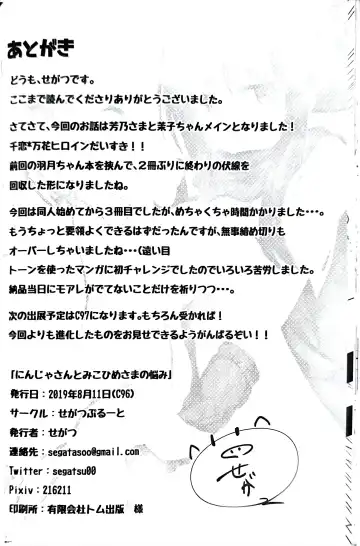 あとがき
どうも、せがつです。
ここまで読んでくださりありがとうございました。
さてさて、今回のお話は芳乃さまと茉子ちゃんメインとなりました！
千恋*万花ヒロインだいすき！！
前回の羽月ちゃん本を挟んで、２冊ぶりに終わりの伏線を
回収した形になりましたね。
今回は同人始めてから３冊目でしたが、めちゃくちゃ時間かかりました・・・。
もうちょっと要領よくできるはずだったんですが、無事締め切りも
オーバーしちゃいましたね・・・（遠い目
トーンを使ったマンガに初チャレンジでしたのでいろいろ苦労しました。
納品当日にモアレがでてないことだけを祈りつつ・・・。
次の出展予定はC97になります。もちろん受かれば！
今回よりも進化したものをお見せできるようがんばるぞい！！
「にんじゃさんとみこひめさまの悩み」
発行日：2019年8月11日(C96)
サークル：せがつぷるーと
発行者：せがつ
連絡先：segatasoo@gmail.com
Twitter：segatsu00
Pixiv：216211
印刷所：有限会社トム出版　様
せが